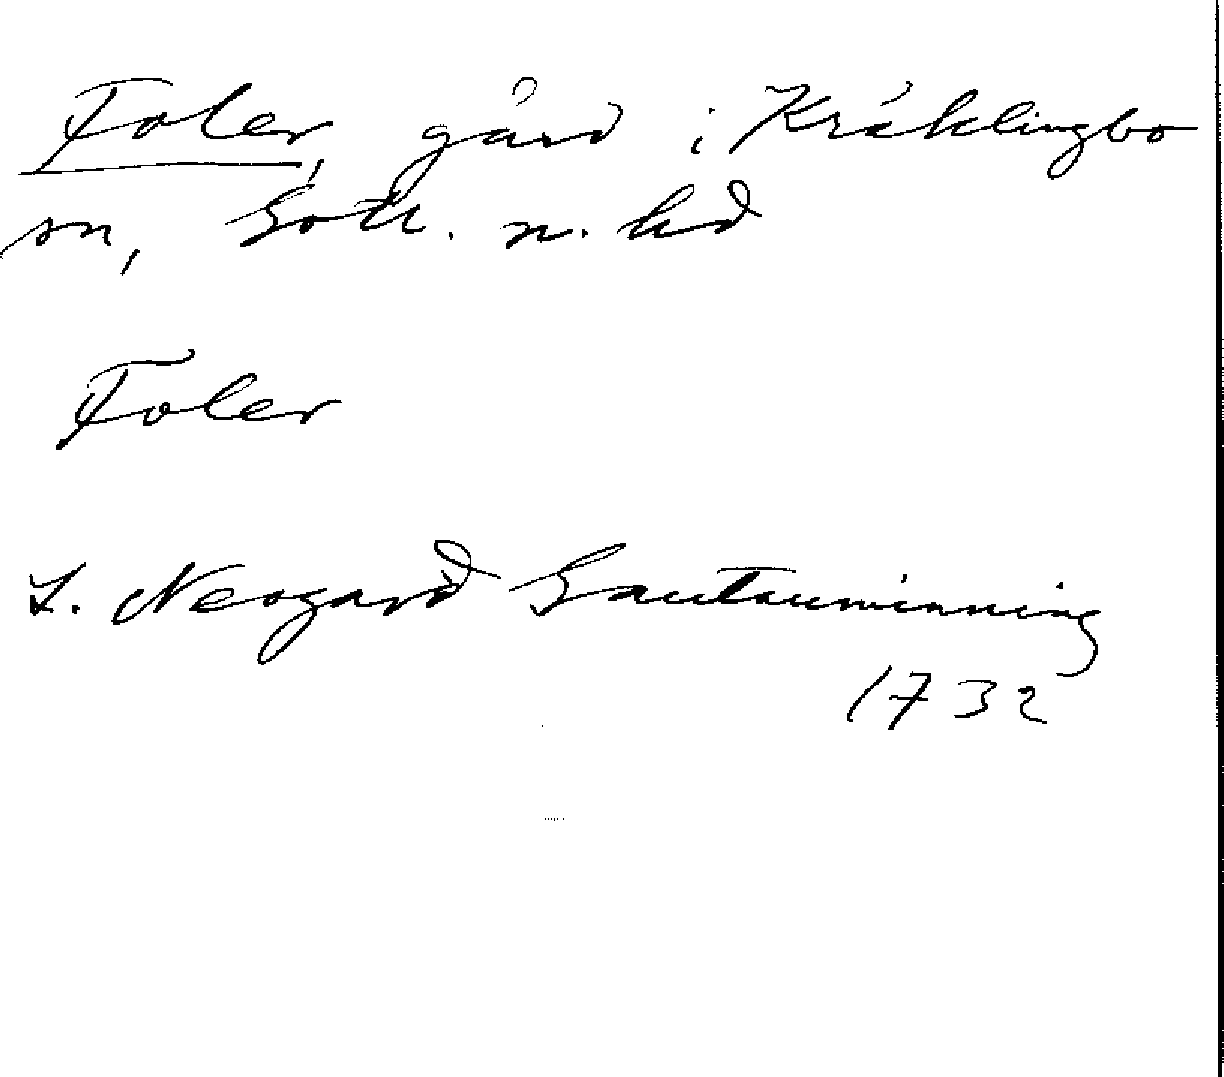 Foler, gård i Kräklingbo
sn, Gotl. n. hd
Foler
L. Neogard Gautauminning
1732